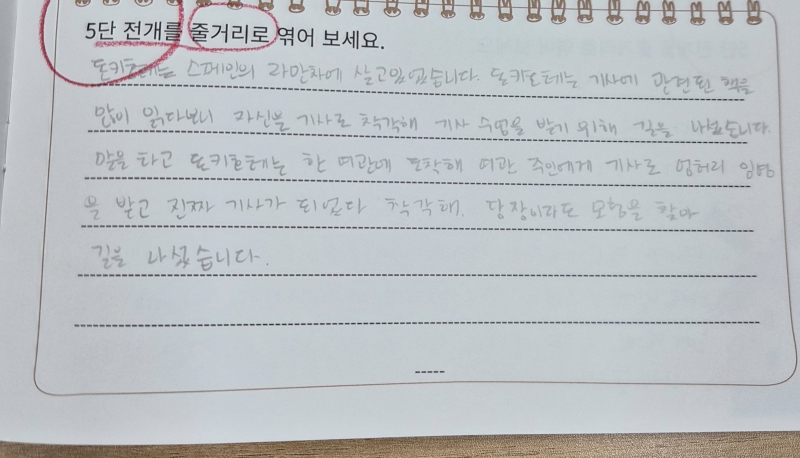 5단 전개를 줄거리로 엮어 보세요.
돈키호테는 스페인의 라만차에 살고있었습니다. 돈키호테는 기사에 관련된 책을
많이 읽다보니 자신을 기사로 착각해 기사 수업을 받기 위해 길을 나섰습니다.
말을 타고 돈키호테는 한 여관에 도착해 여관 주인에게 기사로 엉허리 임명
을 받고 진짜 기사가 되었다 착각해. 당장이라도 모험을 찾아
길을 나섰습니다.